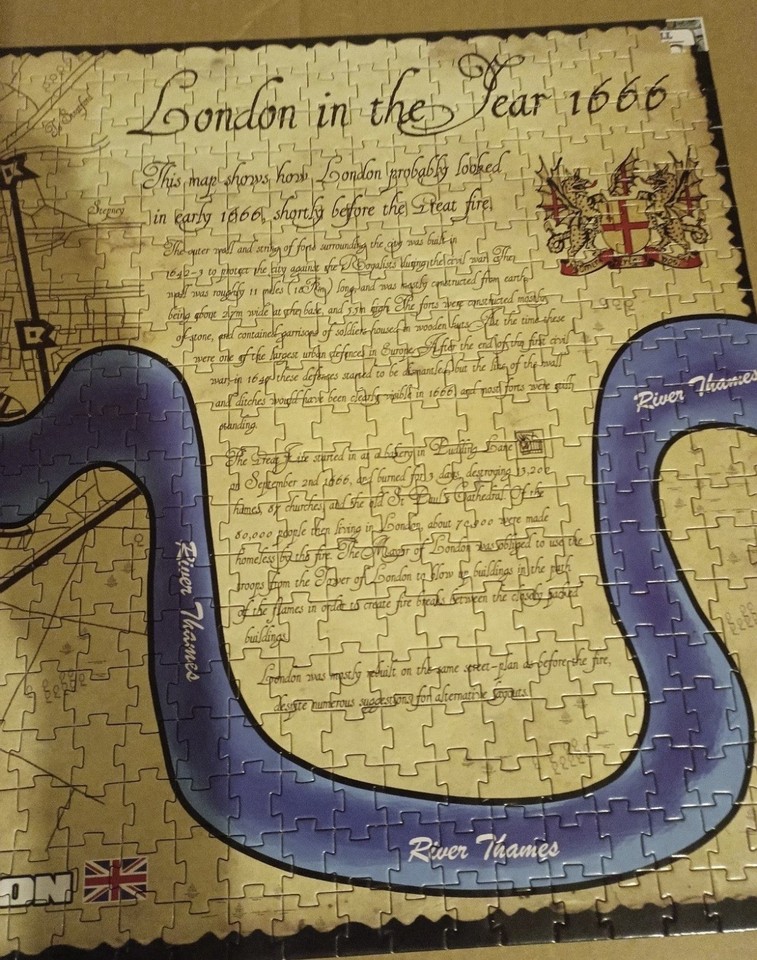 London in the Year 1666
This map shows how London probably looked
in early 1666, shortly before the Great fire.
The outer wall and string of forts surrounding the city was built in
1642-3 to protect the city against the Royalists during the civil war. The
wall was roughly 11 miles (18Km) long, and was mostly constructed from earth,
being about 2.7m wide at the base, and 5.5m high. The forts were constructed mostly
of stone, and contained garrisons of soldiers housed in wooden huts. At the time these
were one of the largest urban defences in Europe. After the end of the first civil
war in 1646 these defenses started to be dismantled, but the line of the wall
and ditches would have been clearly visible in 1666, and most forts were still
standing.
The Great Fire started in at a bakery in Pudding Lane
on September 2nd 1666, and burned for 3 days, destroying 13,200
homes, 87 churches, and the old St Paul's Cathedral. Of the
80,000 people then living in London, about 70,000 were made
homeless by the fire. The Mayor of London was obliged to use the
troops from the Tower of London to blow up buildings in the path
of the flames in order to create fire breaks between the closely packed
buildings.
London was mostly rebuilt on the same street-plan as before the fire,
despite numerous suggestions for alternative layouts.
Stepney
River Thames
River Thames
River Thames
ON